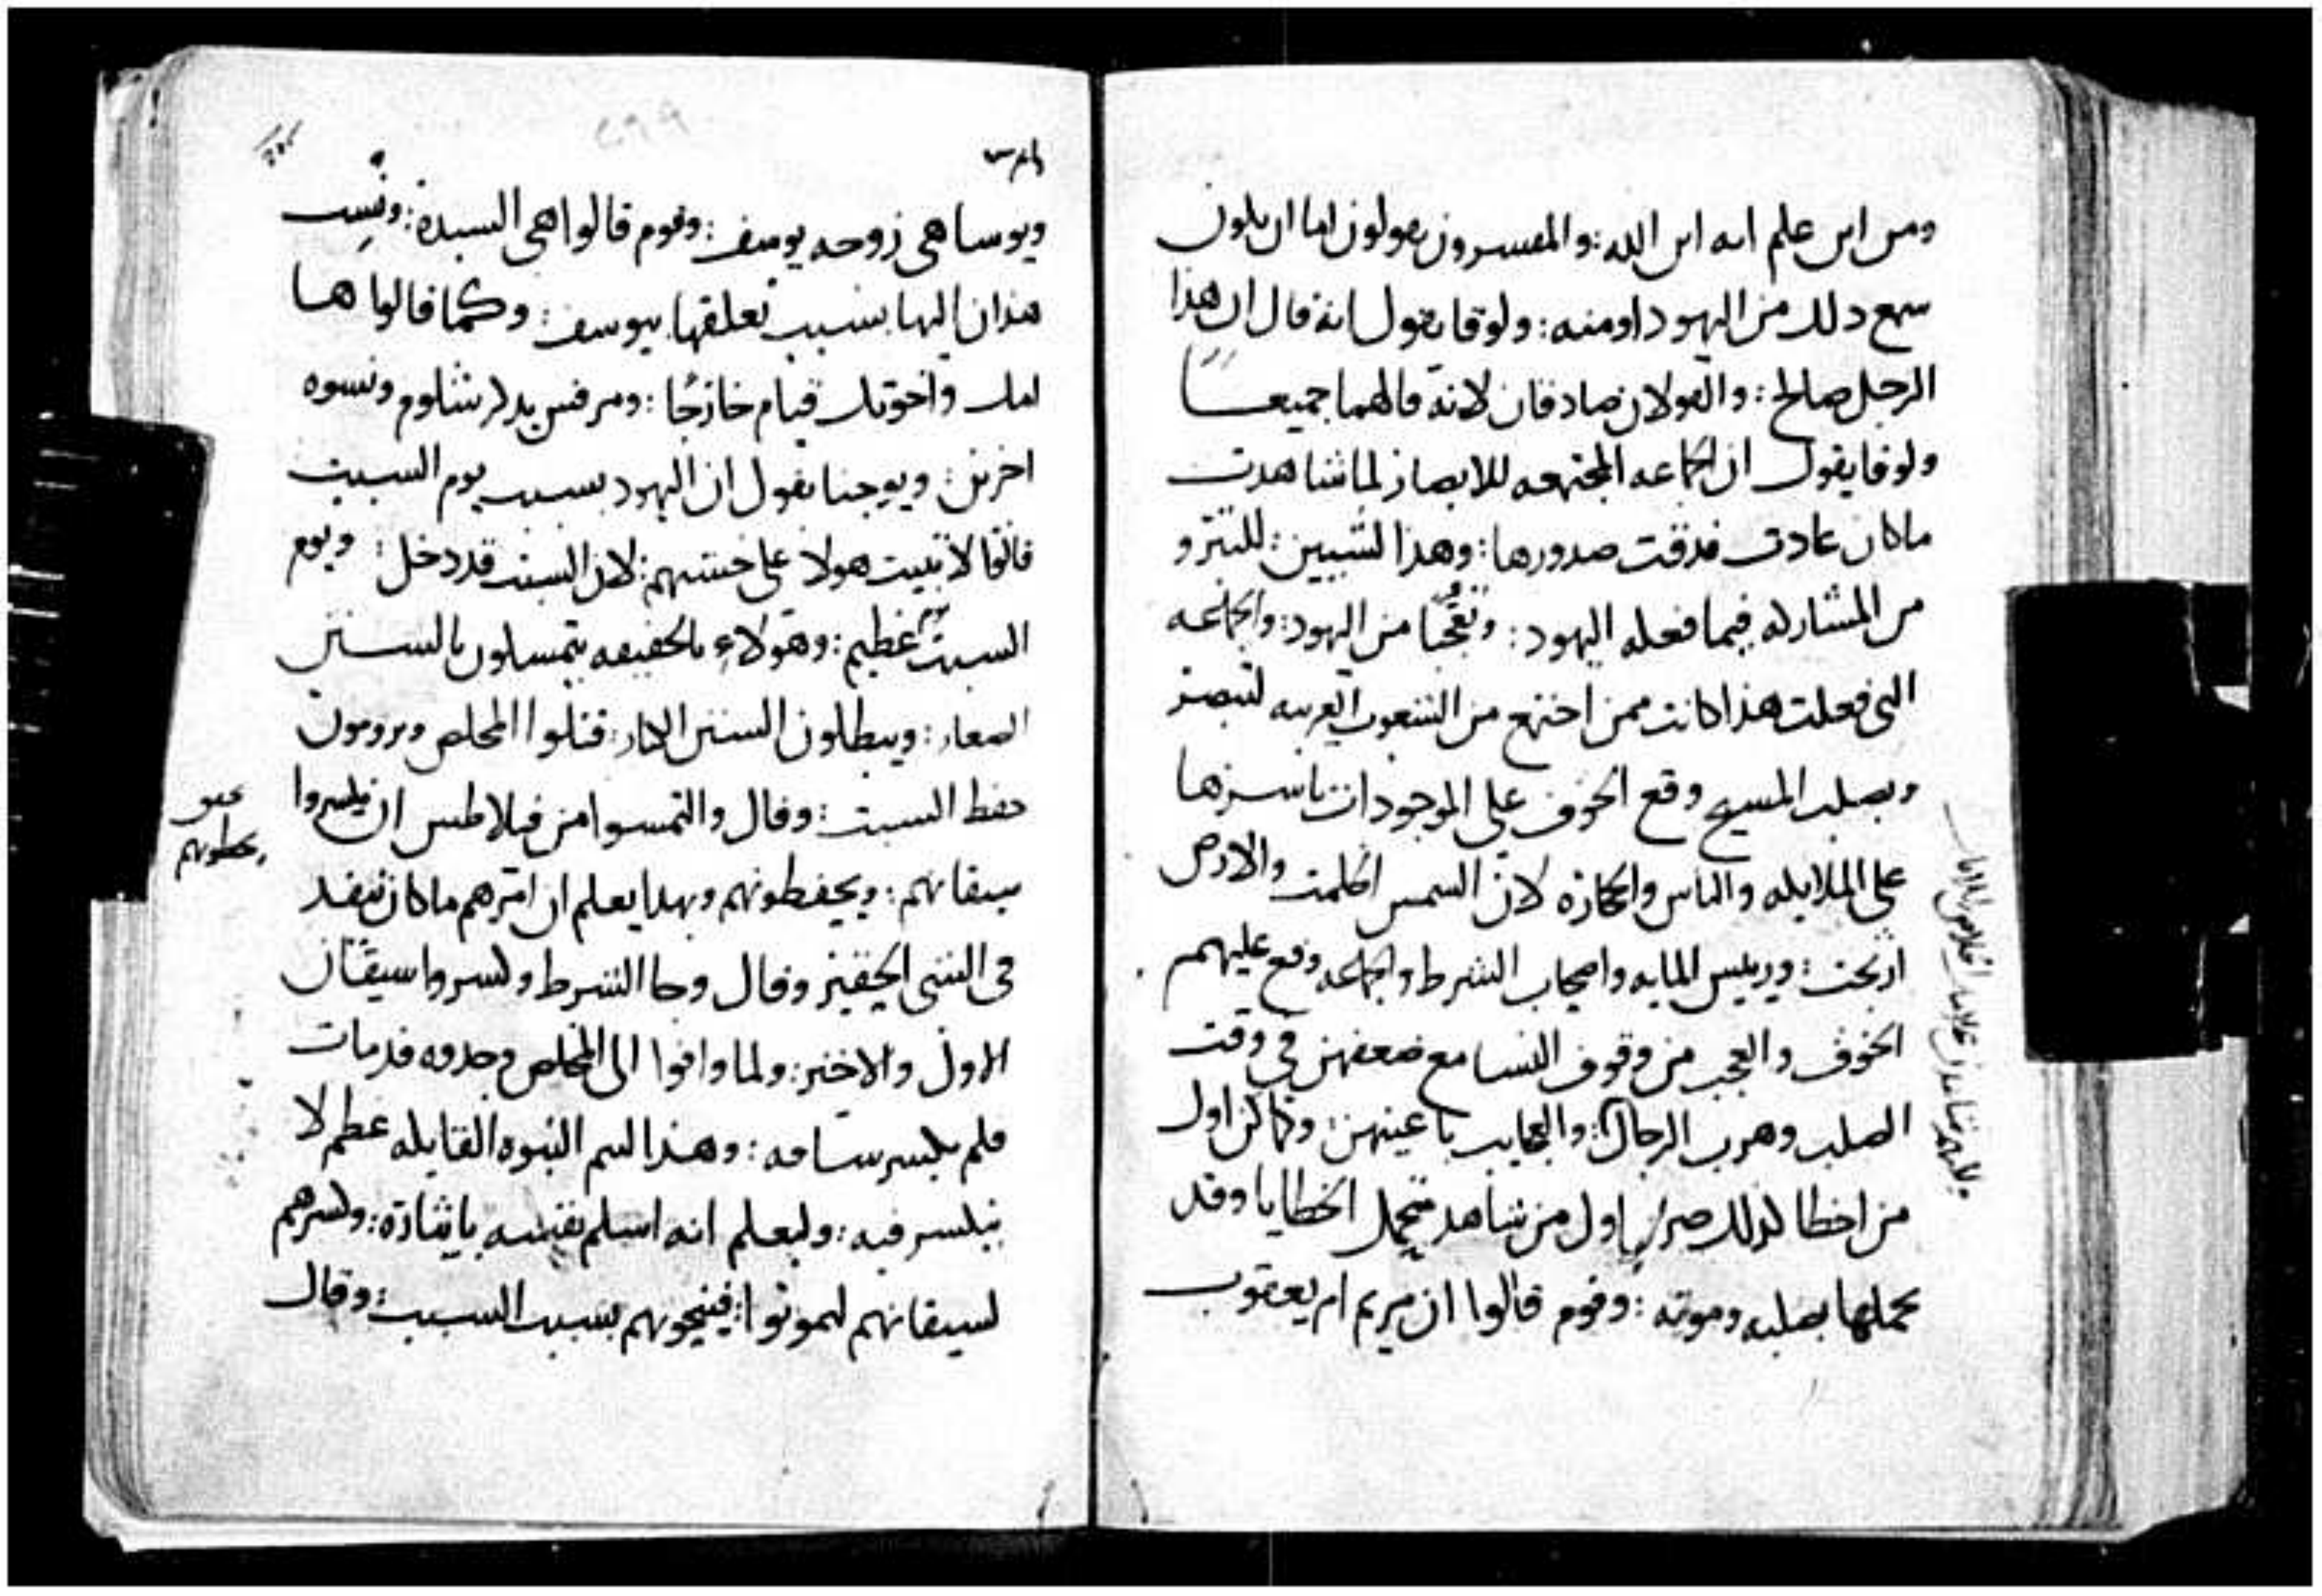 ومن اين علم انه ابن الله : والمفسرون يقولون اما ان يكون
سمع ذلك من اليهود او منه : ولوقا يقول انه قال ان هذا
الرجل صالح : والقولان صادقان لانه قالهما جميعا
ولوقا يقول ان الجماعه المجتمعه للابصار لما شاهدت
ماكان عادت فدقت صدورها : وهذا لشيين : للتبرو
من المشاركه فيما فعله اليهود : وتعجبا من اليهود : والجماعه
التي فعلت هذا كانت ممن اجتمع من الشعوب الغريبه لتبصر
وبصلب المسيح وقع الخوف على الموجودات باسرها
على الملايكه والناس والحجاره لان الشمس اظلمت والارض
ارتجت : ورييس المايه واصحاب الشرط والجماعه وقع عليهم
الخوف والعجب من وقوف النسا مع ضعفهن في وقت
الصلب وهرب الرجال : والعجايب باعينهن : وكما كن اول
من اخطا لذلك صرن اول من شاهد متحمل الخطايا وقد
حملها بصلبه وموته : وقوم قالوا ان مريم ام يعقوب
ويوسا هي زوجه يوسف : وقوم قالوا هي السيدة : ونسب
هذان اليها بسبب تعلقها بيوسف : وكما قالوا ها
امك واخوتك قيام خارجا : ومرقس يذكر شلوم ونسوه
اخرين : ويوحنا يقول ان اليهود بسبب يوم السبت
قالوا لا تبيت هولا على خشبهم : لان السبت قد دخل : ويوم
السبت عظيم : وهولاء بالحقيقه يتمسكون بالسنن
الصغار : ويبطلون السنن الكبار : قتلوا المخلص ويرومون
حفظ السبت : وقال والتمسوا من فيلاطس ان يكسروا
سيقانهم : ويحفظونهم وبهذا يعلم ان امرهم ماكان ينفد
في الشي الحقير وقال وجا الشرط وكسروا سيقان
الاول والاخر : ولما وافوا الى المخلص وجدوه قد مات
فلم يكسر ساقه : وهذا لتتم النبوه القايله عظم لا
ينكسر فيه : وليعلم انه اسلم نفسه بايثاره : وكسرهم
لسيقانهم ليموتوا : فينحونهم بسبب السبت : وقال